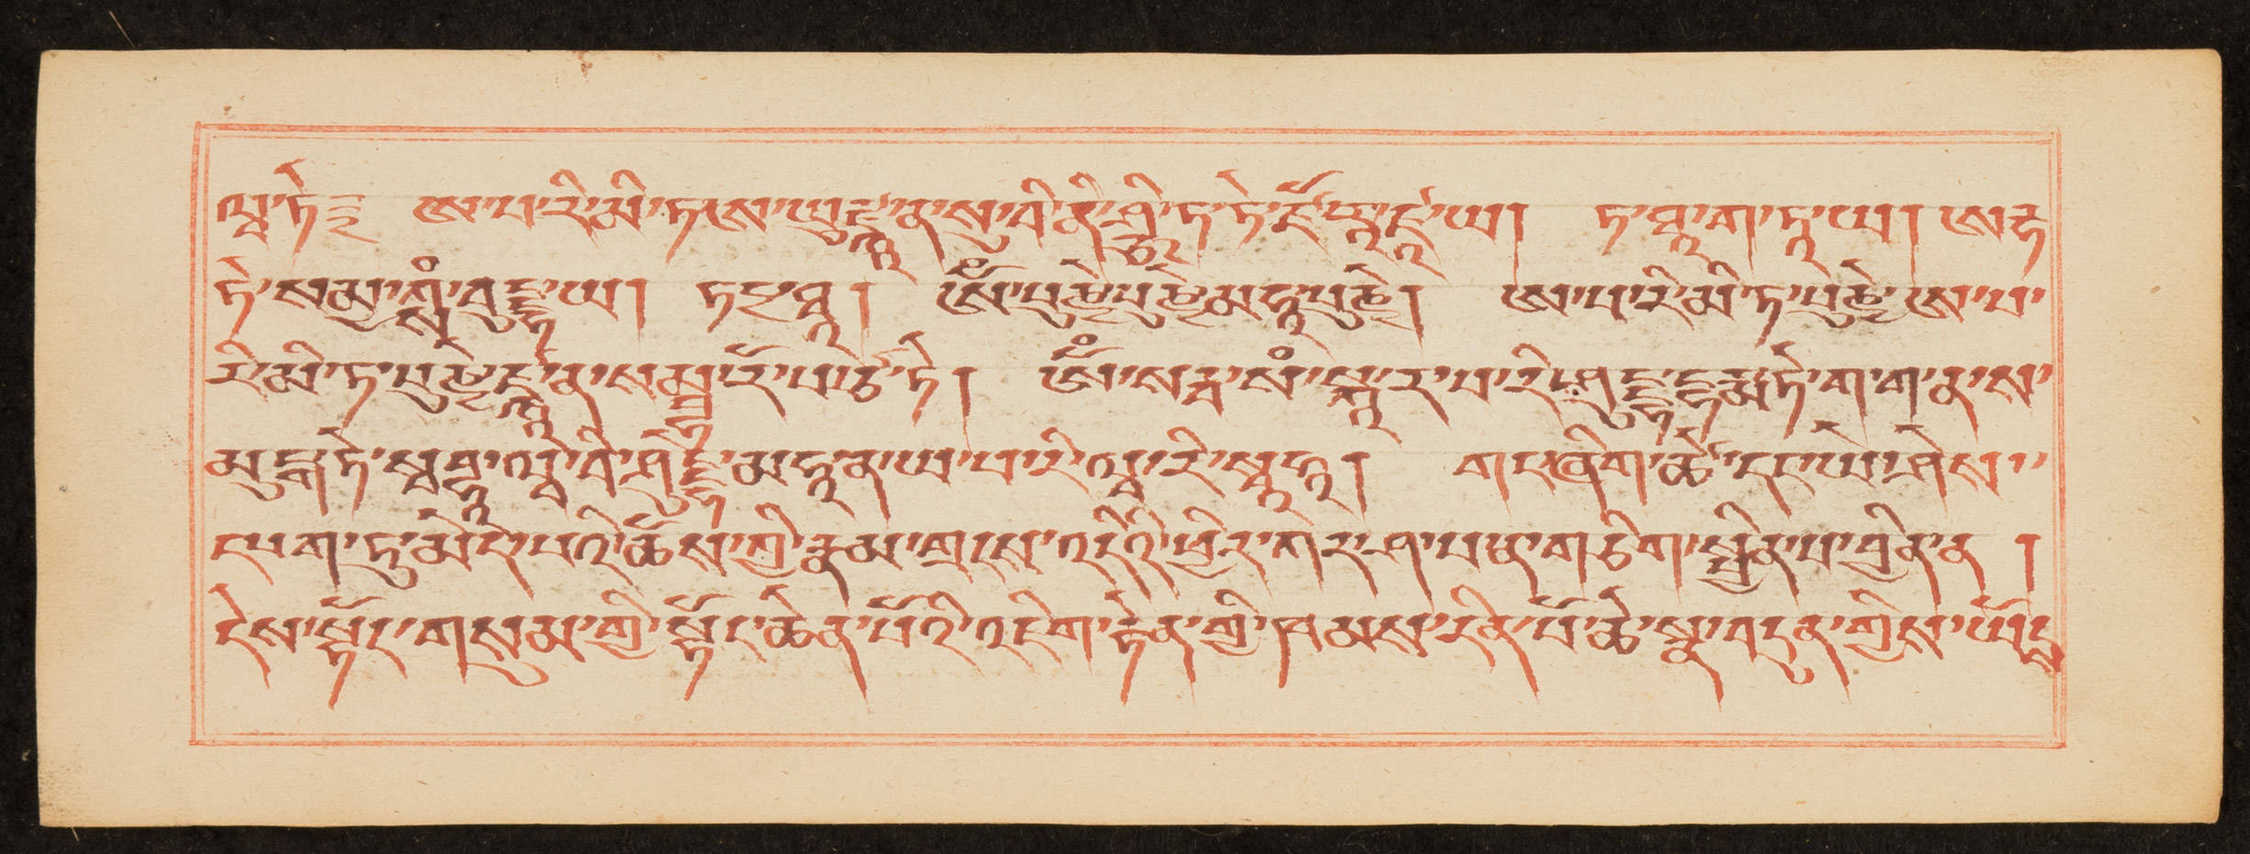 ཝ་ཏེ༔ ཨ་པ་རི་མི་ཏ་ཨཱ་ཡུརྫྙཱ་ན་སུ་བི་ནི་ཤྩི་ཏ་ཏེ་ཛོ་རཱ་ཛཱ་ཡ། ཏ་ཐཱ་ག་ཏཱ་ཡ། ཨརྷ
ཏེ་སམྱཀྶཾ་བུདྡྷཱ་ཡ། ཏདྱ་ཐཱ། ཨོཾ་པུཎྱེ་པུཎྱེ་མཧཱ་པུཎྱེ། ཨ་པ་རི་མི་ཏ་པུཎྱེ་ཨ་པ་
རི་མི་ཏ་པུཎྱེ་ཛྙཱ་ན་སམྦྷཱ་རོ་པ་ཙི་ཏེ། ཨོཾ་སརྦ་སཾ་སྐཱ་ར་པ་རི་ཤུདྡྷ་དྷརྨ་ཏེ་ག་ག་ན་ས་
མུངྒ་ཏེ་སྭ་བྷཱ་ཝ་བི་ཤུདྡྷེ་མ་ཧཱ་ན་ཡ་པ་རི་ཝཱ་རི་སྭཱ་ཧཱ། གང་ཞིག་ཚེ་དང་ཡེ་ཤེས་
དཔག་ཏུ་མེད་པའི་ཆོས་ཀྱི་རྣམ་གྲངས་འདིའི་ཕྱིར་ཀར་ཤ་པ་ཎ་གཅིག་སྦྱིན་པ་བྱིན་ན །
དེས་སྟོང་གསུམ་གྱི་སྟོང་ཆེན་པོའི་འཇིག་རྟེན་གྱི་ཁམས་རིན་པོ་ཆེ་སྣ་བདུན་གྱིས་ཡོངས